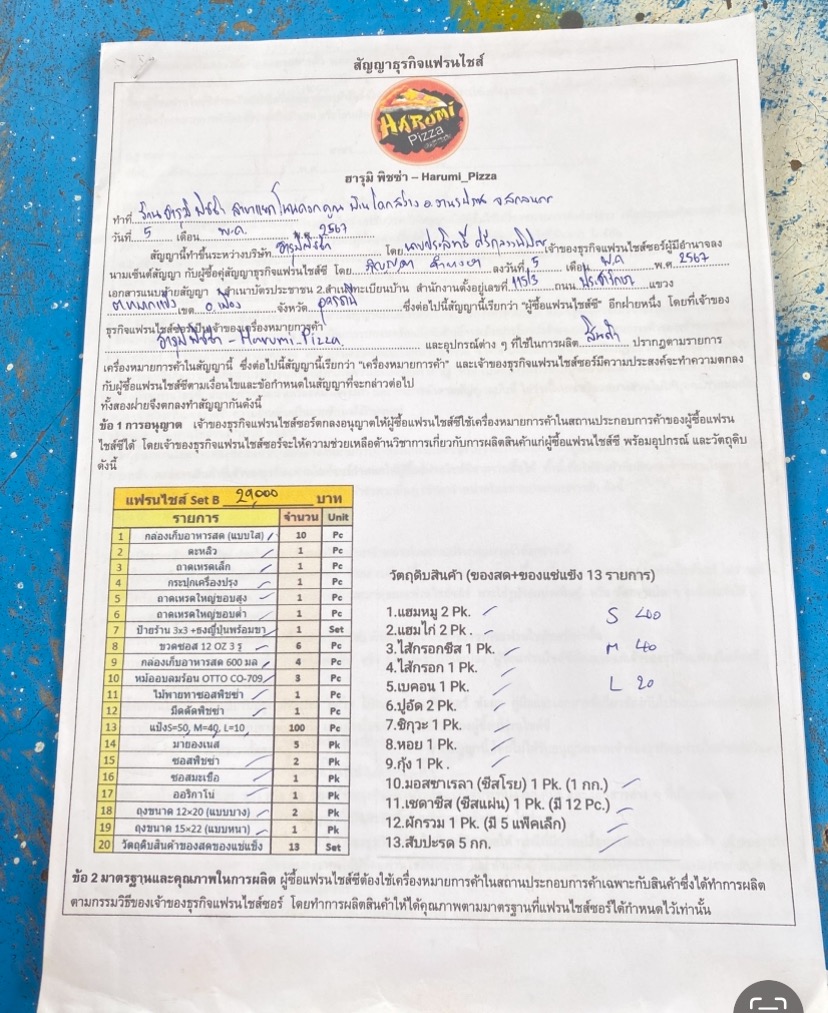 สัญญาธุรกิจแฟรนไชส์
HARUMI
Pizza
ฮารุมิ พิชซ่า – Harumi_Pizza
ทำที่ ร้านฮารุมิ พิซซ่า สาขา
วันที่ 5 เดือน พ.ค. 2567
สัญญานี้ทำขึ้นระหว่างบริษัท ฮารุมิพิซซ่า โดย เจ้าของธุรกิจแฟรนไชส์ซอร์ผู้มีอำนาจลง
นามเซ็นต์สัญญา กับผู้ซื้อคู่สัญญาธุรกิจแฟรนไชส์ซี โดย ลงวันที่ 5 เดือน พ.ค พ.ศ. 2567
เอกสารแนบท้ายสัญญา 1.สำเนาบัตรประชาชน 2.สำเนาทะเบียนบ้าน สำนักงานตั้งอยู่เลขที่ 115/3 ถนน แขวง
เขต อ.เมือง จังหวัด ซึ่งต่อไปนี้สัญญานี้เรียกว่า "ผู้ซื้อแฟรนไชส์ซี" อีกฝ่ายหนึ่ง โดยที่เจ้าของ
ธุรกิจแฟรนไชส์ซอร์เป็นเจ้าของเครื่องหมายการค้า
ฮารุมิพิซซ่า - Harumi_Pizza. และอุปกรณ์ต่าง ๆ ที่ใช้ในการผลิต สินค้า ปรากฏตามรายการ
เครื่องหมายการค้าในสัญญานี้ ซึ่งต่อไปนี้สัญญานี้เรียกว่า "เครื่องหมายการค้า" และเจ้าของธุรกิจแฟรนไชส์ซอร์มีความประสงค์จะทำความตกลง
กับผู้ซื้อแฟรนไชส์ซีตามเงื่อนไขและข้อกำหนดในสัญญาที่จะกล่าวต่อไป
ทั้งสองฝ่ายจึงตกลงทำสัญญากันดังนี้
ข้อ 1 การอนุญาต เจ้าของธุรกิจแฟรนไชส์ซอร์ตกลงอนุญาตให้ผู้ซื้อแฟรนไชส์ซีใช้เครื่องหมายการค้าในสถานประกอบการค้าของผู้ซื้อแฟรน
ไชส์ซีได้ โดยเจ้าของธุรกิจแฟรนไชส์ซอร์จะให้ความช่วยเหลือด้านวิชาการเกี่ยวกับการผลิตสินค้าแก่ผู้ซื้อแฟรนไชส์ซี พร้อมอุปกรณ์ และวัตถุดิบ
ดังนี้
แฟรนไชส์ Set B 29,000 บาท
รายการ จำนวน Unit
1 กล่องเก็บอาหารสด (แบบใส) 10 Pc
2 ตะหลิว 1 Pc
3 ถาดเทรดเล็ก 1 Pc
4 กระปุกเครื่องปรุง 1 Pc
5 ถาดเทรดใหญ่ขอบสูง 1 Pc
6 ถาดเทรดใหญ่ขอบต่ำ 1 Pc
7 ป้ายร้าน 3x3 +ธงญี่ปุ่นพร้อมขา 1 Set
8 ขวดซอส 12 OZ 3 รู 6 Pc
9 กล่องเก็บอาหารสด 600 มล 4 Pc
10 หม้ออบลมร้อน OTTO CO-709 3 Pc
11 ไม้พายทาซอสพิซซ่า 1 Pc
12 มีดตัดพิชซ่า 1 Pc
13 แป้งS=50, M=40, L=10 100 Pc
14 มายองเนส 5 Pk
15 ซอสพิชซ่า 2 Pk
16 ซอสมะเขือ 1 Pk
17 ออริกาโน่ 1 Pk
18 ถุงขนาด 12×20 (แบบบาง) 2 Pk
19 ถุงขนาด 15×22 (แบบหนา) 1 Pk
20 วัตถุดิบสินค้าของสดของแช่แข็ง 13 Set
วัตถุดิบสินค้า (ของสด+ของแช่แข็ง 13 รายการ)
1.แฮมหมู 2 Pk. S 400
2.แฮมไก่ 2 Pk .
3.ไส้กรอกชีส 1 Pk. M 400
4.ไส้กรอก 1 Pk.
5.เบคอน 1 Pk. L 20
6.ปูอัด 2 Pk.
7.ชิกุวะ 1 Pk.
8.หอย 1 Pk.
9.กุ้ง 1 Pk .
10.มอสซาเรลา (ชีสโรย) 1 Pk. (1 กก.)
11.เชดาชีส (ชีสแผ่น) 1 Pk. (มี 12 Pc.)
12.ผักรวม 1 Pk. (มี 5 แพ็คเล็ก)
13.สับปะรด 5 กก.
ข้อ 2 มาตรฐานและคุณภาพในการผลิต ผู้ซื้อแฟรนไชส์ซีต้องใช้เครื่องหมายการค้าในสถานประกอบการค้าเฉพาะกับสินค้าซึ่งได้ทำการผลิต
ตามกรรมวิธีของเจ้าของธุรกิจแฟรนไชส์ซอร์ โดยทำการผลิตสินค้าให้ได้คุณภาพตามมาตรฐานที่แฟรนไชส์ซอร์ได้กำหนดไว้เท่านั้น